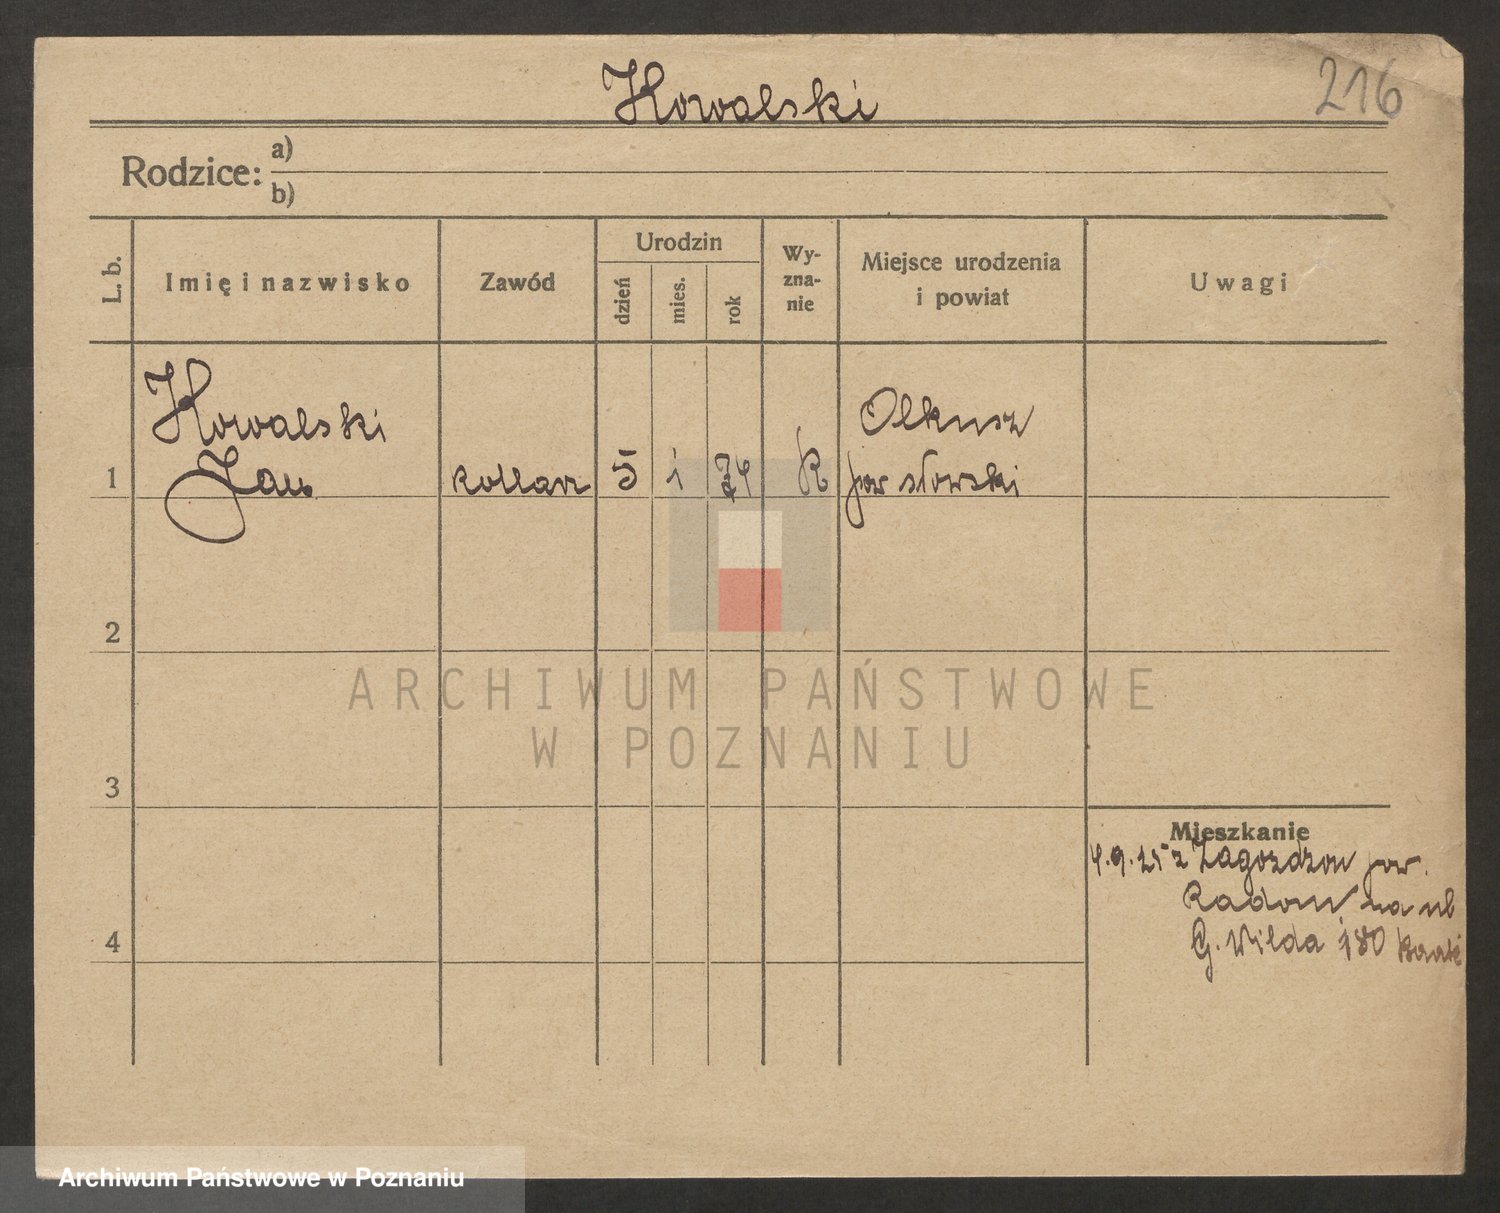 Kowalski
216
Rodzice: a)
b)
L. b.
Imię i nazwisko
Zawód
Urodzin
dzień
mies.
rok
Wy-
zna-
nie
Miejsce urodzenia
i powiat
Uwagi
Kowalski
Olkusz
1 Jan kotlarz 5 1 74 R pow słowski
2
ARCHIWUM PAŃSTWOWE
W POZNANIU
3
Mieszkanie
4.9.25 z Zagozdzon pow.
Radom na ul
4 G. Wilda 180
Archiwum Państwowe w Poznaniu